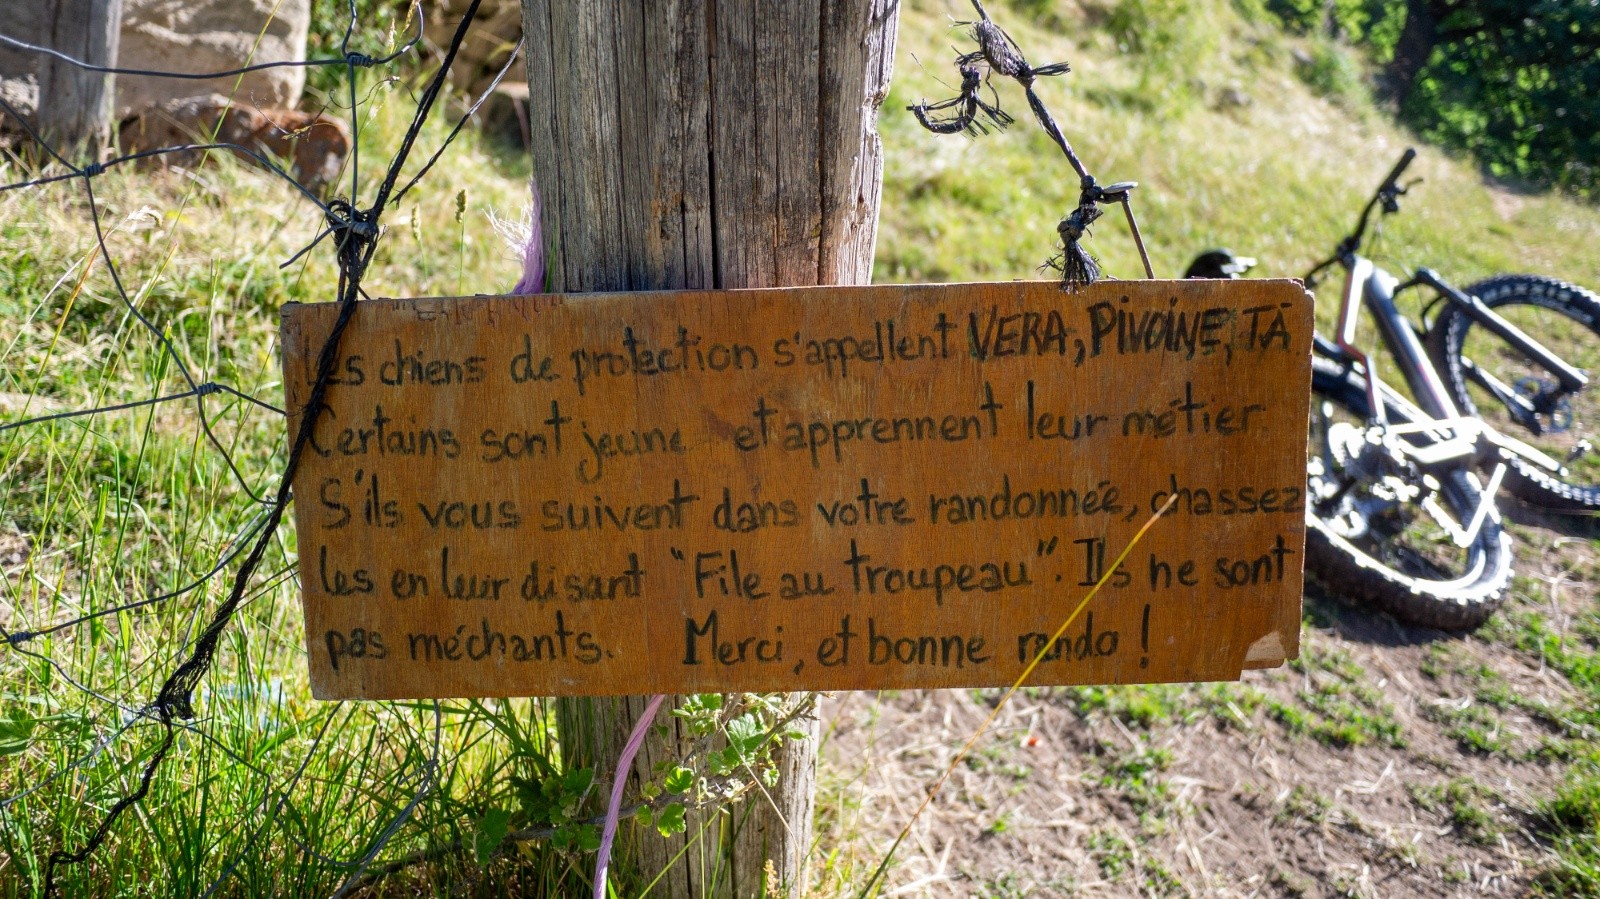 Les chiens de protection s'appellent VERA, PIVOINE, TA
Certains sont jeune et apprennent leur métier.
S'ils vous suivent dans votre randonnée, chassez
les en leur disant "File au troupeau". Ils ne sont
pas méchants. Merci, et bonne rando !